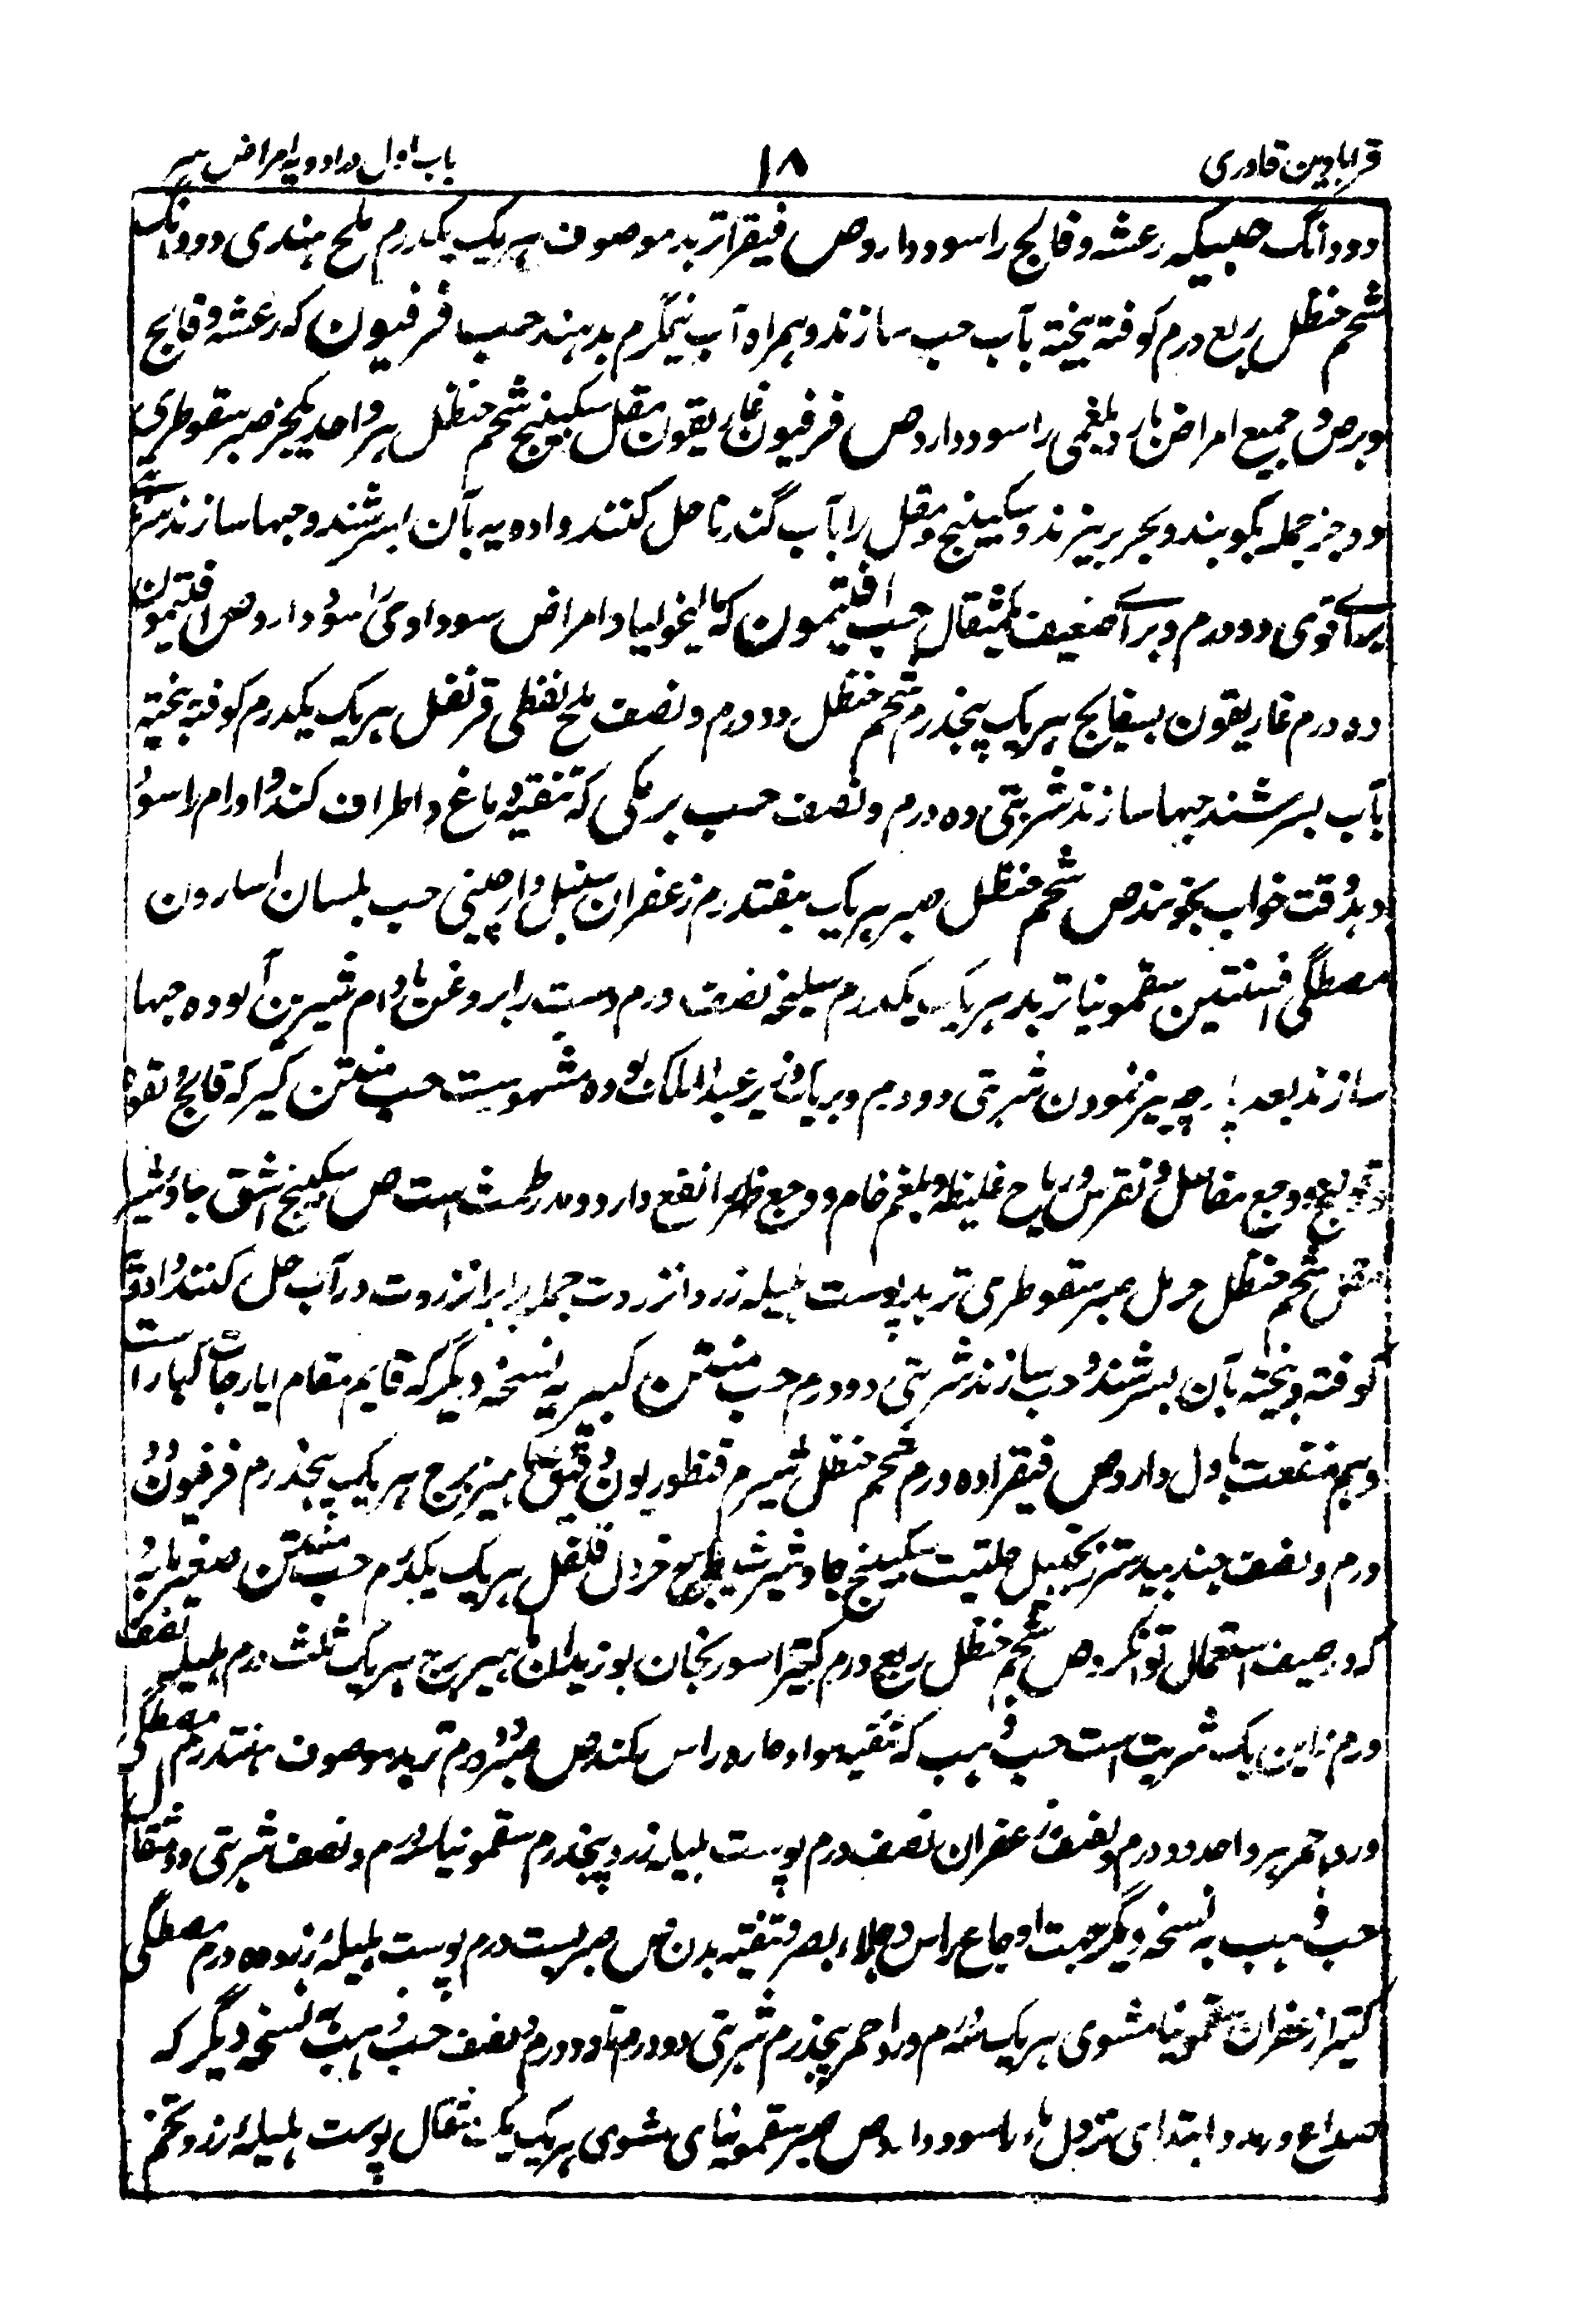 قرابادین قادری
۱۸
باب اول در ادویه امراض سر
دودانگ حبیکه رعشه و فالج را سود دارد ص فیقرا تربد موصوف هریک یکدرم ملح هندی دودانگ
شحم حنظل ربع درم کوفته بیخته بآب حب سازند و همراه آب نیمگرم بدهند حب فرفیون که رعشه و فالج
و برص و جمیع امراض بارد بلغمی را سود دارد ص فرفیون غاریقون مقل سکبینج شحم حنظل هر واحد یکجز صبر سقوطری
دو جز جمله بکوبند و بحریر بیزند و سکبینج و مقل را بآب گندنا حل کنند و ادویه بآن بسرشند و حبها سازند شربتی
برای قوی دودرم و برای ضعیف یکمثقال حب افتیمون که مالیخولیا و امراض سوداوی را سود دارد ص افتیمون
ده درم غاریقون بسفایج هریک پنجدرم شحم حنظل دودرم و نصف ملح نفطی قرنفل هریک یکدرم کوفته بیخته
بآب بسرشند حبها سازند شربتی دو درم و نصف حب برمکی که تنقیه دماغ و اطراف کند و اورام را سود
دهد وقت خواب بخورند ص شحم حنظل صبر هریک هفتدرم زعفران سنبل دارچینی حب بلسان اسارون
مصطگی افسنتین سقمونیا تربد هریک یکدرم سلیخه نصف درم دست را بروغن بادام شیرین آلوده حبها
سازند بعد پارچه بیز نمودن شربتی دودرم و بریان وزیر عبدالملک بوده مشهورست حب منتن کبیر که فالج و لقوه
و قولنج و وجع مفاصل و نقرس و ریاح غلیظه و بلغم خام و وجع ظهر را نفع دارد و مدر طمث است ص سکبینج اشق جاوشیر
مقل شحم حنظل حرمل صبر سقوطری تربد پوست هلیله زرد انزروت جمله برابر انزروت در آب حل کنند و ادویه
کوفته و بیخته بآن بسرشند و حب سازند شربتی دودرم حب منتن کبیر به نسخه دیگر که قایم مقام ایارجات کبار است
و هم منفعت باول دارد ص فیقرا ده درم شحم حنظل سیدرم قنطوریون دقیق ماهیزهرج هریک پنجدرم فرفیون دو
درم و نصف جندبیدستر زنجبیل حلتیت سکبینج جاوشیر شیطرج خردل فلفل هریک یکدرم حب منتن صغیر بارد
که در صیف استعمال توانکرد ص شحم حنظل ربع درم کتیرا سورنجان بوزیدان ماهیزهرج هریک ثلث درم هلیله نصف
درم و این یک شربت است حب ذهب که تنقیه مواد حاره راس بکند ص صبر ده درم تربد موصوف هفتدرم مصطگی
ورد احمر هر واحد دودرم و نصف زعفران نصف درم پوست هلیله زرد پنجدرم سقمونیا سه درم و نصف شربتی دو مثقال
حب ذهب به نسخه دیگر جهت اوجاع راس و جلاء بصر و تنقیه بدن ص صبر بیست درم پوست هلیله زرد ده درم مصطگی
کتیرا زعفران سقمونیا مشوی هریک سه درم ورد احمر پنجدرم شربتی دودرم تا دودرم و نصف حب ذهب به نسخه دیگر که
صداع و رمد و ابتدای نزول ماء را سود دارد ص صبر سقمونیای مشوی هریک یکمثقال پوست هلیله زرد تخم